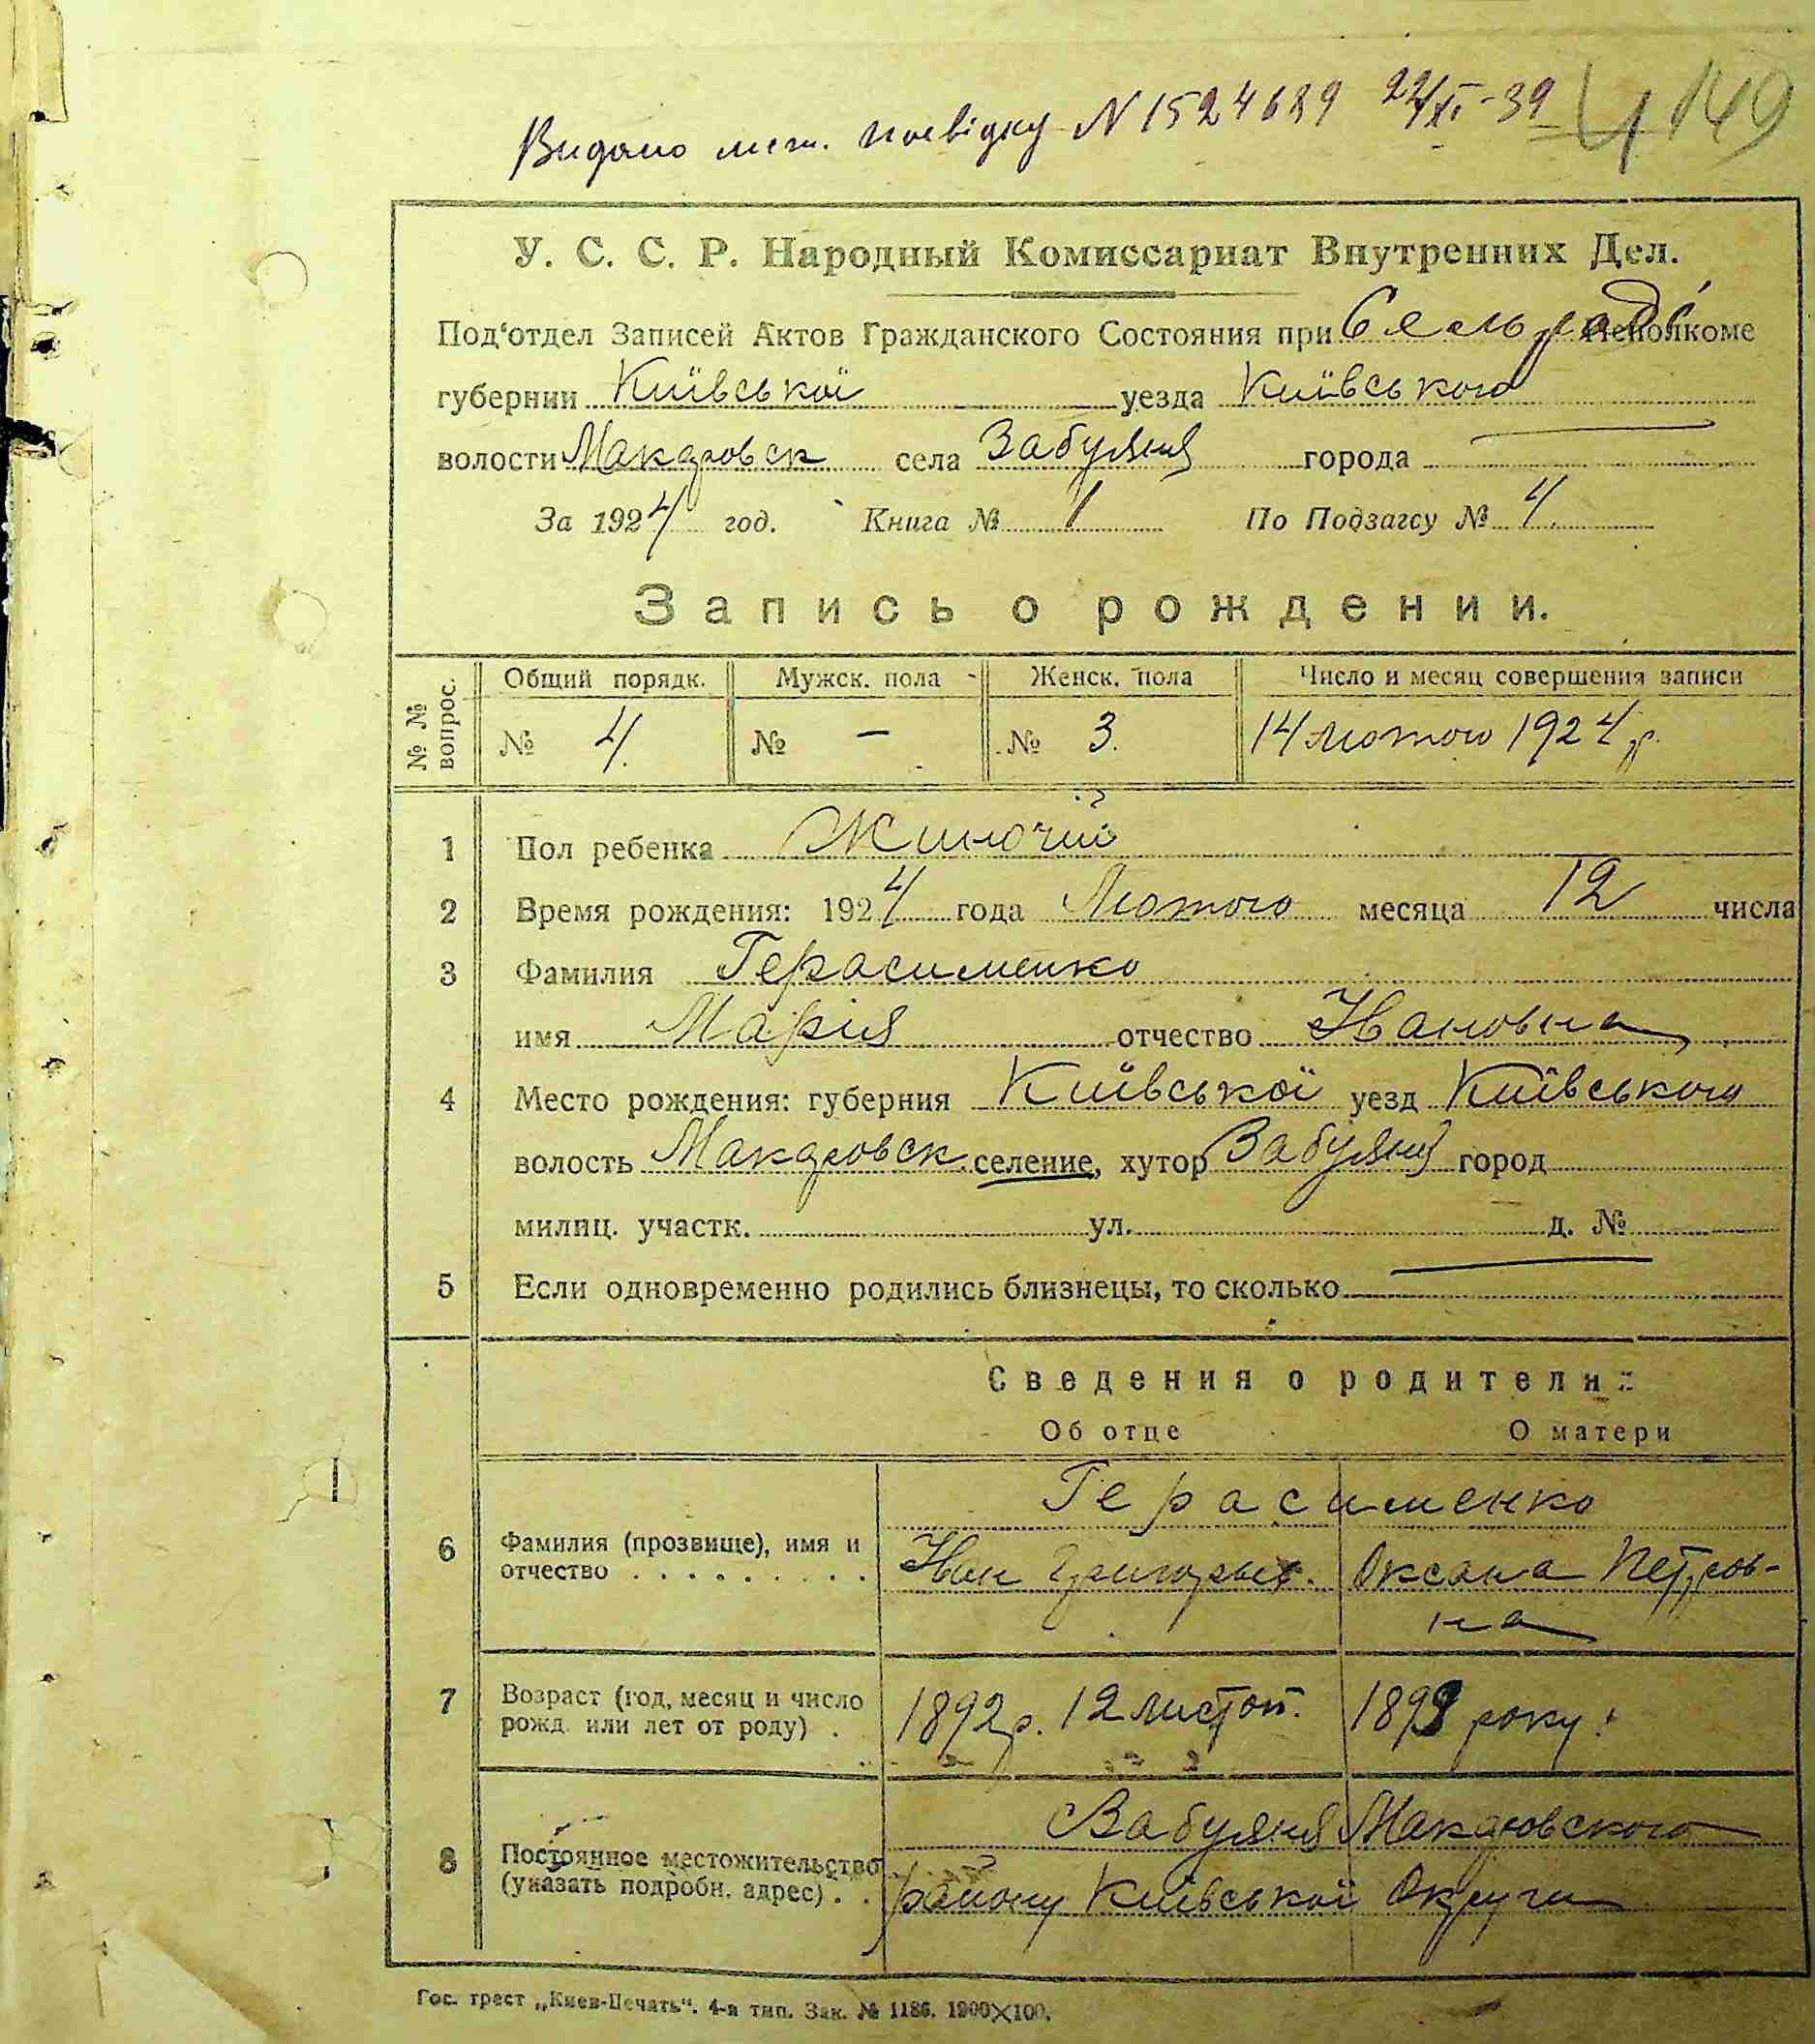 Видано мет. посвідку N 1524689 22/XI-39 4 149
У. С. С. Р. Народный Комиссариат Внутренних Дел.
Под'отдел Записей Актов Гражданского Состояния при Сельраді Исполкоме
губернии Київської уезда Київського
волости Макаровск села Забуяня города
За 1924 год. Книга № 1 По Подзагсу № 4.
Запись о рождении.
№ № вопрос. Общий порядк. Мужск. пола Женск. пола Число и месяц совершения записи
№ 4. № — № 3. 14 лютого 1924 р.
1 Пол ребенка Жиночий
2 Время рождения: 1924 года Лютого месяца 12 числа
3 Фамилия Герасименко
имя Марія отчество Ивановна
4 Место рождения: губерния Київської уезд Київського
волость Макаровск. селение, хутор Забуяня город
милиц. участк. ул. д. №
5 Если одновременно родились близнецы, то сколько
Сведения о родителях:
Об отце О матери
Герасименко
6 Фамилия (прозвище), имя и отчество Иван Григорьев. Оксана Петровна
7 Возраст (год, месяц и число рожд. или лет от роду) . 1892 р. 12 листоп. 1898 року.
Забуяня Макаровского
8 Постоянное местожительство (указать подробн. адрес) . . району Київської Округи
Гос. трест „Киев-Печать“. 4-я тип. Зак. № 1186. 1900×100.